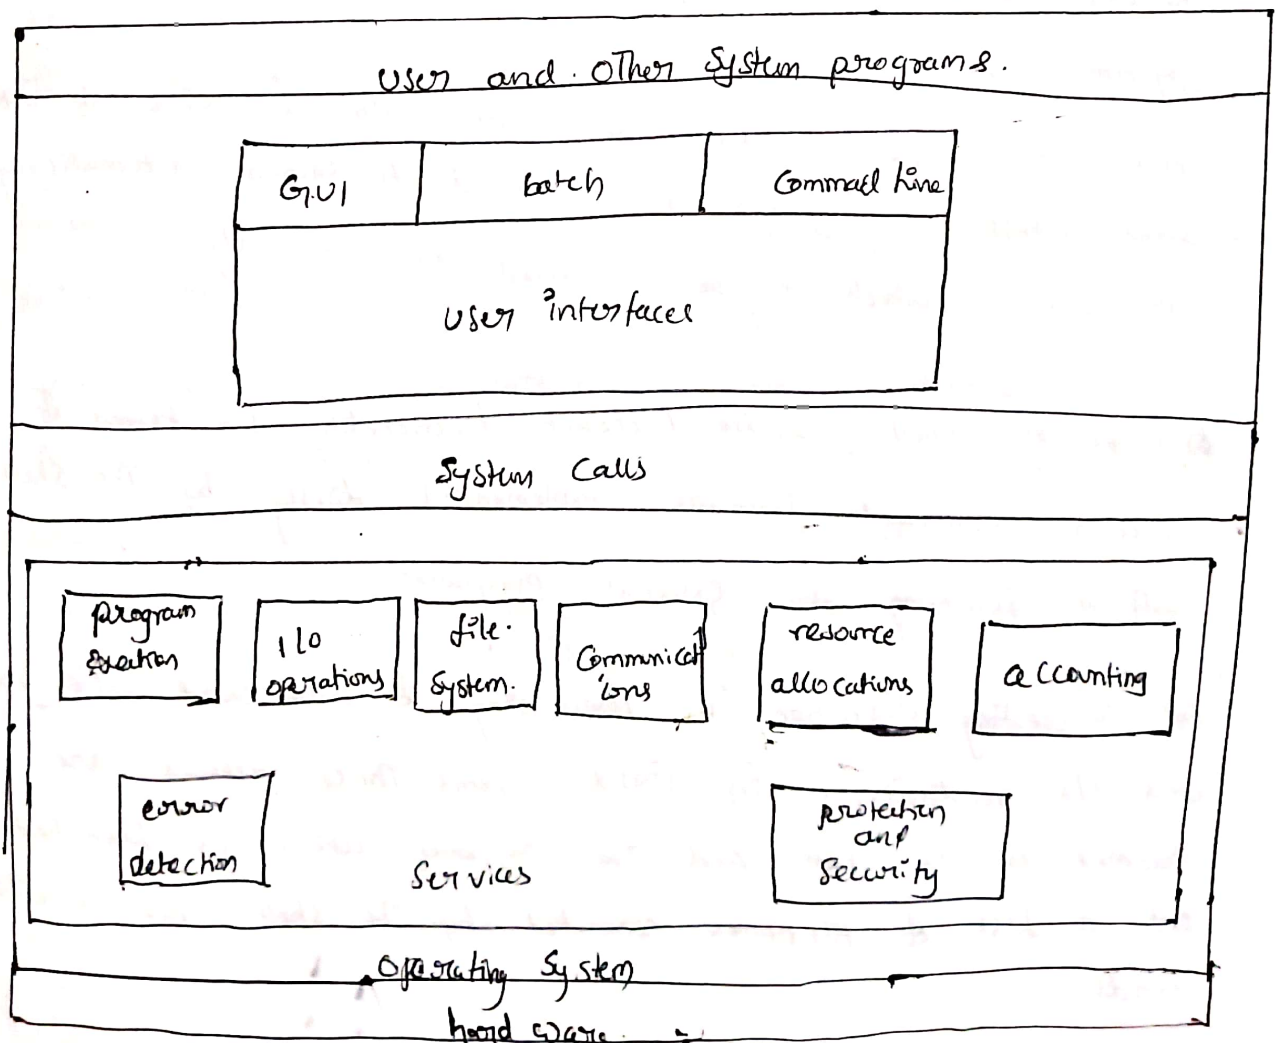 user and other System programs.
G.UI batch Commad Line
user interfaces
System Calls
program
execution
I/O
operations
file.
system.
Communicat
ions
resource
allocations
accounting
error
detection
Services
protection
and
Security
Operating System
hardware.